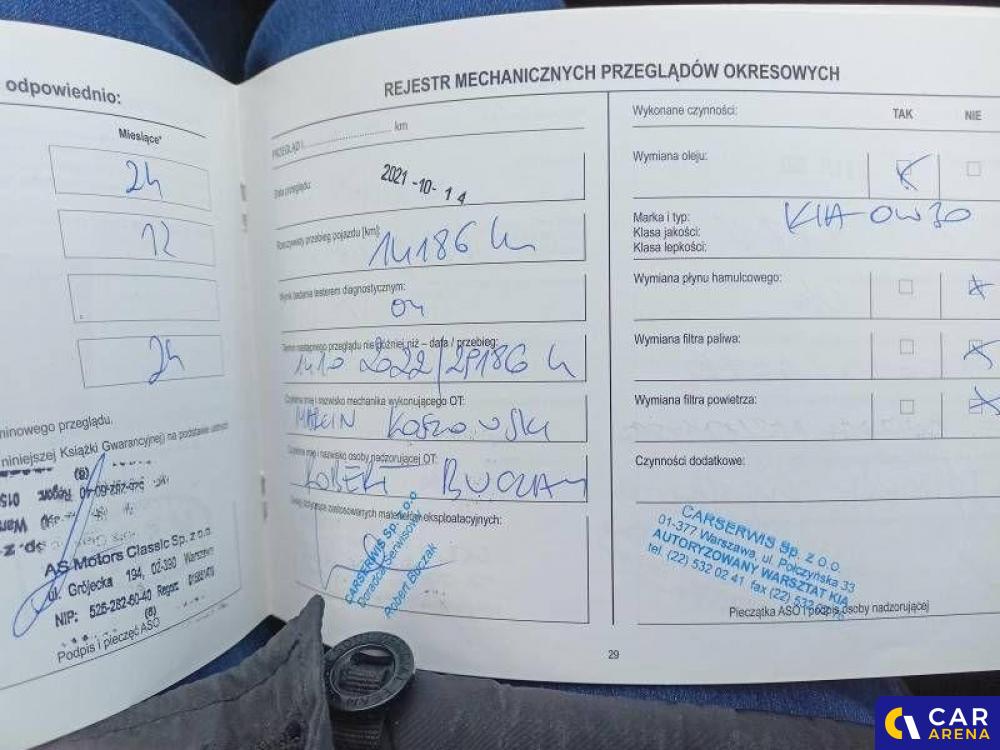 odpowiednio:
Miesiące*
24
12
24
ninowego przeglądu.
niniejszej Książki Gwarancyjnej) na podstawie
AS Motors Classic Sp. z o.o.
ul. Grójecka 194, 02-390 Warszawa
NIP: 526-282-60-40 Regon:
(8)
Podpis i pieczęć ASO
REJESTR MECHANICZNYCH PRZEGLĄDÓW OKRESOWYCH
PRZEGLĄD I km
Data przeglądu:
2021-10-14
Rzeczywisty przebieg pojazdu [km]:
14186 km
Wynik badania testerem diagnostycznym:
Termin następnego przeglądu nie później niż – data / przebieg:
14 10 2022/29186 k
Czytelne imię i nazwisko mechanika wykonującego OT:
MARCIN
Czytelne imię i nazwisko osoby nadzorującej OT:
ROBERT
zastosowanych materiałów eksploatacyjnych:
CARSERWIS Sp. z o.o
Doradca Serwisowy
Robert Buczak
Wykonane czynności: TAK NIE
Wymiana oleju:
Marka i typ:
KIA 0W30
Klasa jakości:
Klasa lepkości:
Wymiana płynu hamulcowego:
Wymiana filtra paliwa:
Wymiana filtra powietrza:
Czynności dodatkowe:
CARSERWIS Sp. z o.o.
01-377 Warszawa, ul. Połczyńska 33
AUTORYZOWANY WARSZTAT KIA
tel. (22) 532 02 41 fax (22) 532
Pieczątka ASO i podpis osoby nadzorującej
29
CAR
ARENA